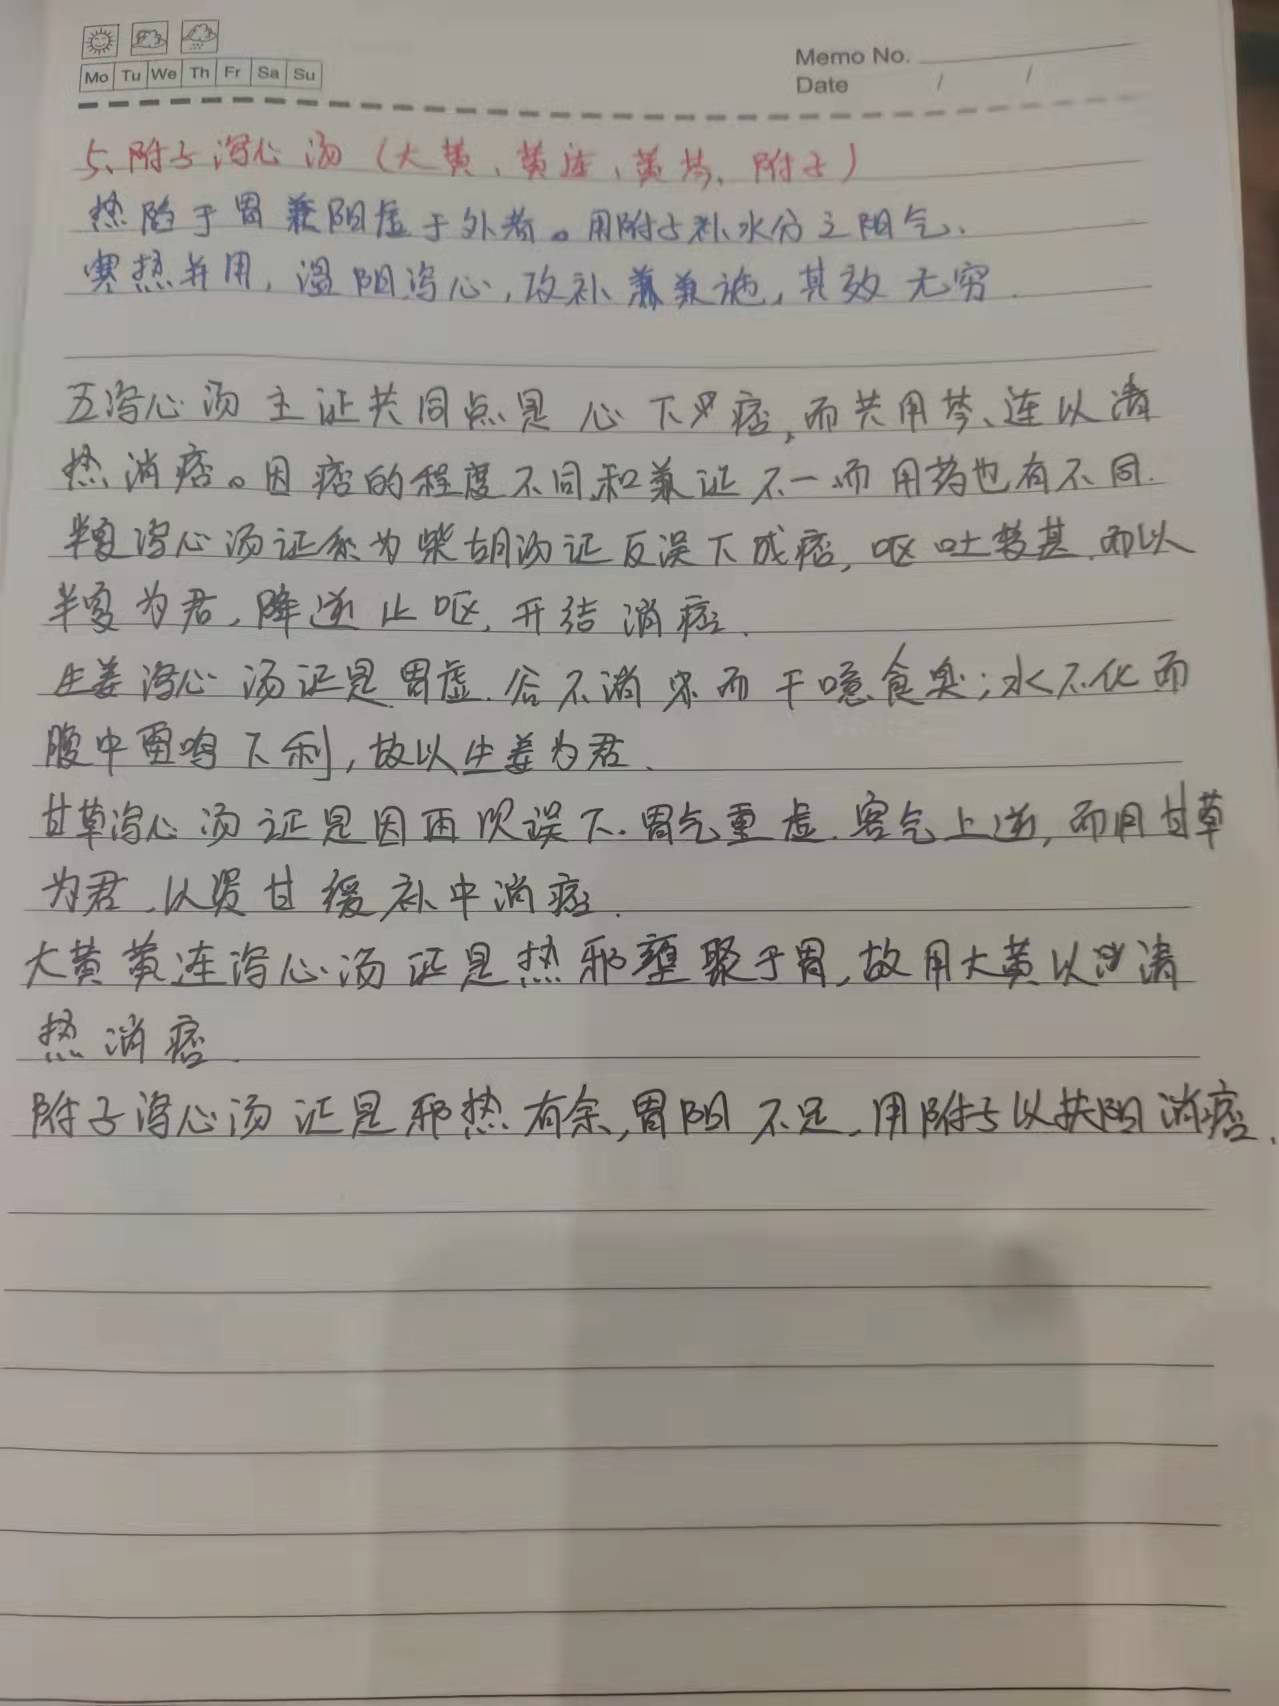 Mo Tu We Th Fr Sa Su
Memo No.
Date / /
5、附子泻心汤（大黄、黄连、黄芩、附子）
热陷于胃兼阳虚于外者。用附子补水分之阳气、
寒热并用，温阳泻心，攻补兼施，其效无穷.
五泻心汤主证共同点是心下痞，而共用芩、连以清
热消痞。因痞的程度不同和兼证不一而用药也有不同.
半夏泻心汤证系为柴胡汤证反误下成痞，呕吐较甚.而以
半夏为君，降逆止呕，开结消痞.
生姜泻心汤证是胃虚.谷不消而干噫食臭；水不化而
腹中雷鸣下利，故以生姜为君、
甘草泻心汤证是因再次误下.胃气重虚.客气上逆，而用甘草
为君.以甘缓补中消痞.
大黄黄连泻心汤证是热邪壅聚于胃，故用大黄以清
热消痞.
附子泻心汤证是邪热有余，胃阳不足.用附子以扶阳消痞.